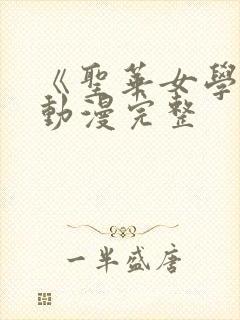 《聖華女學
動漫完整
一半盛唐